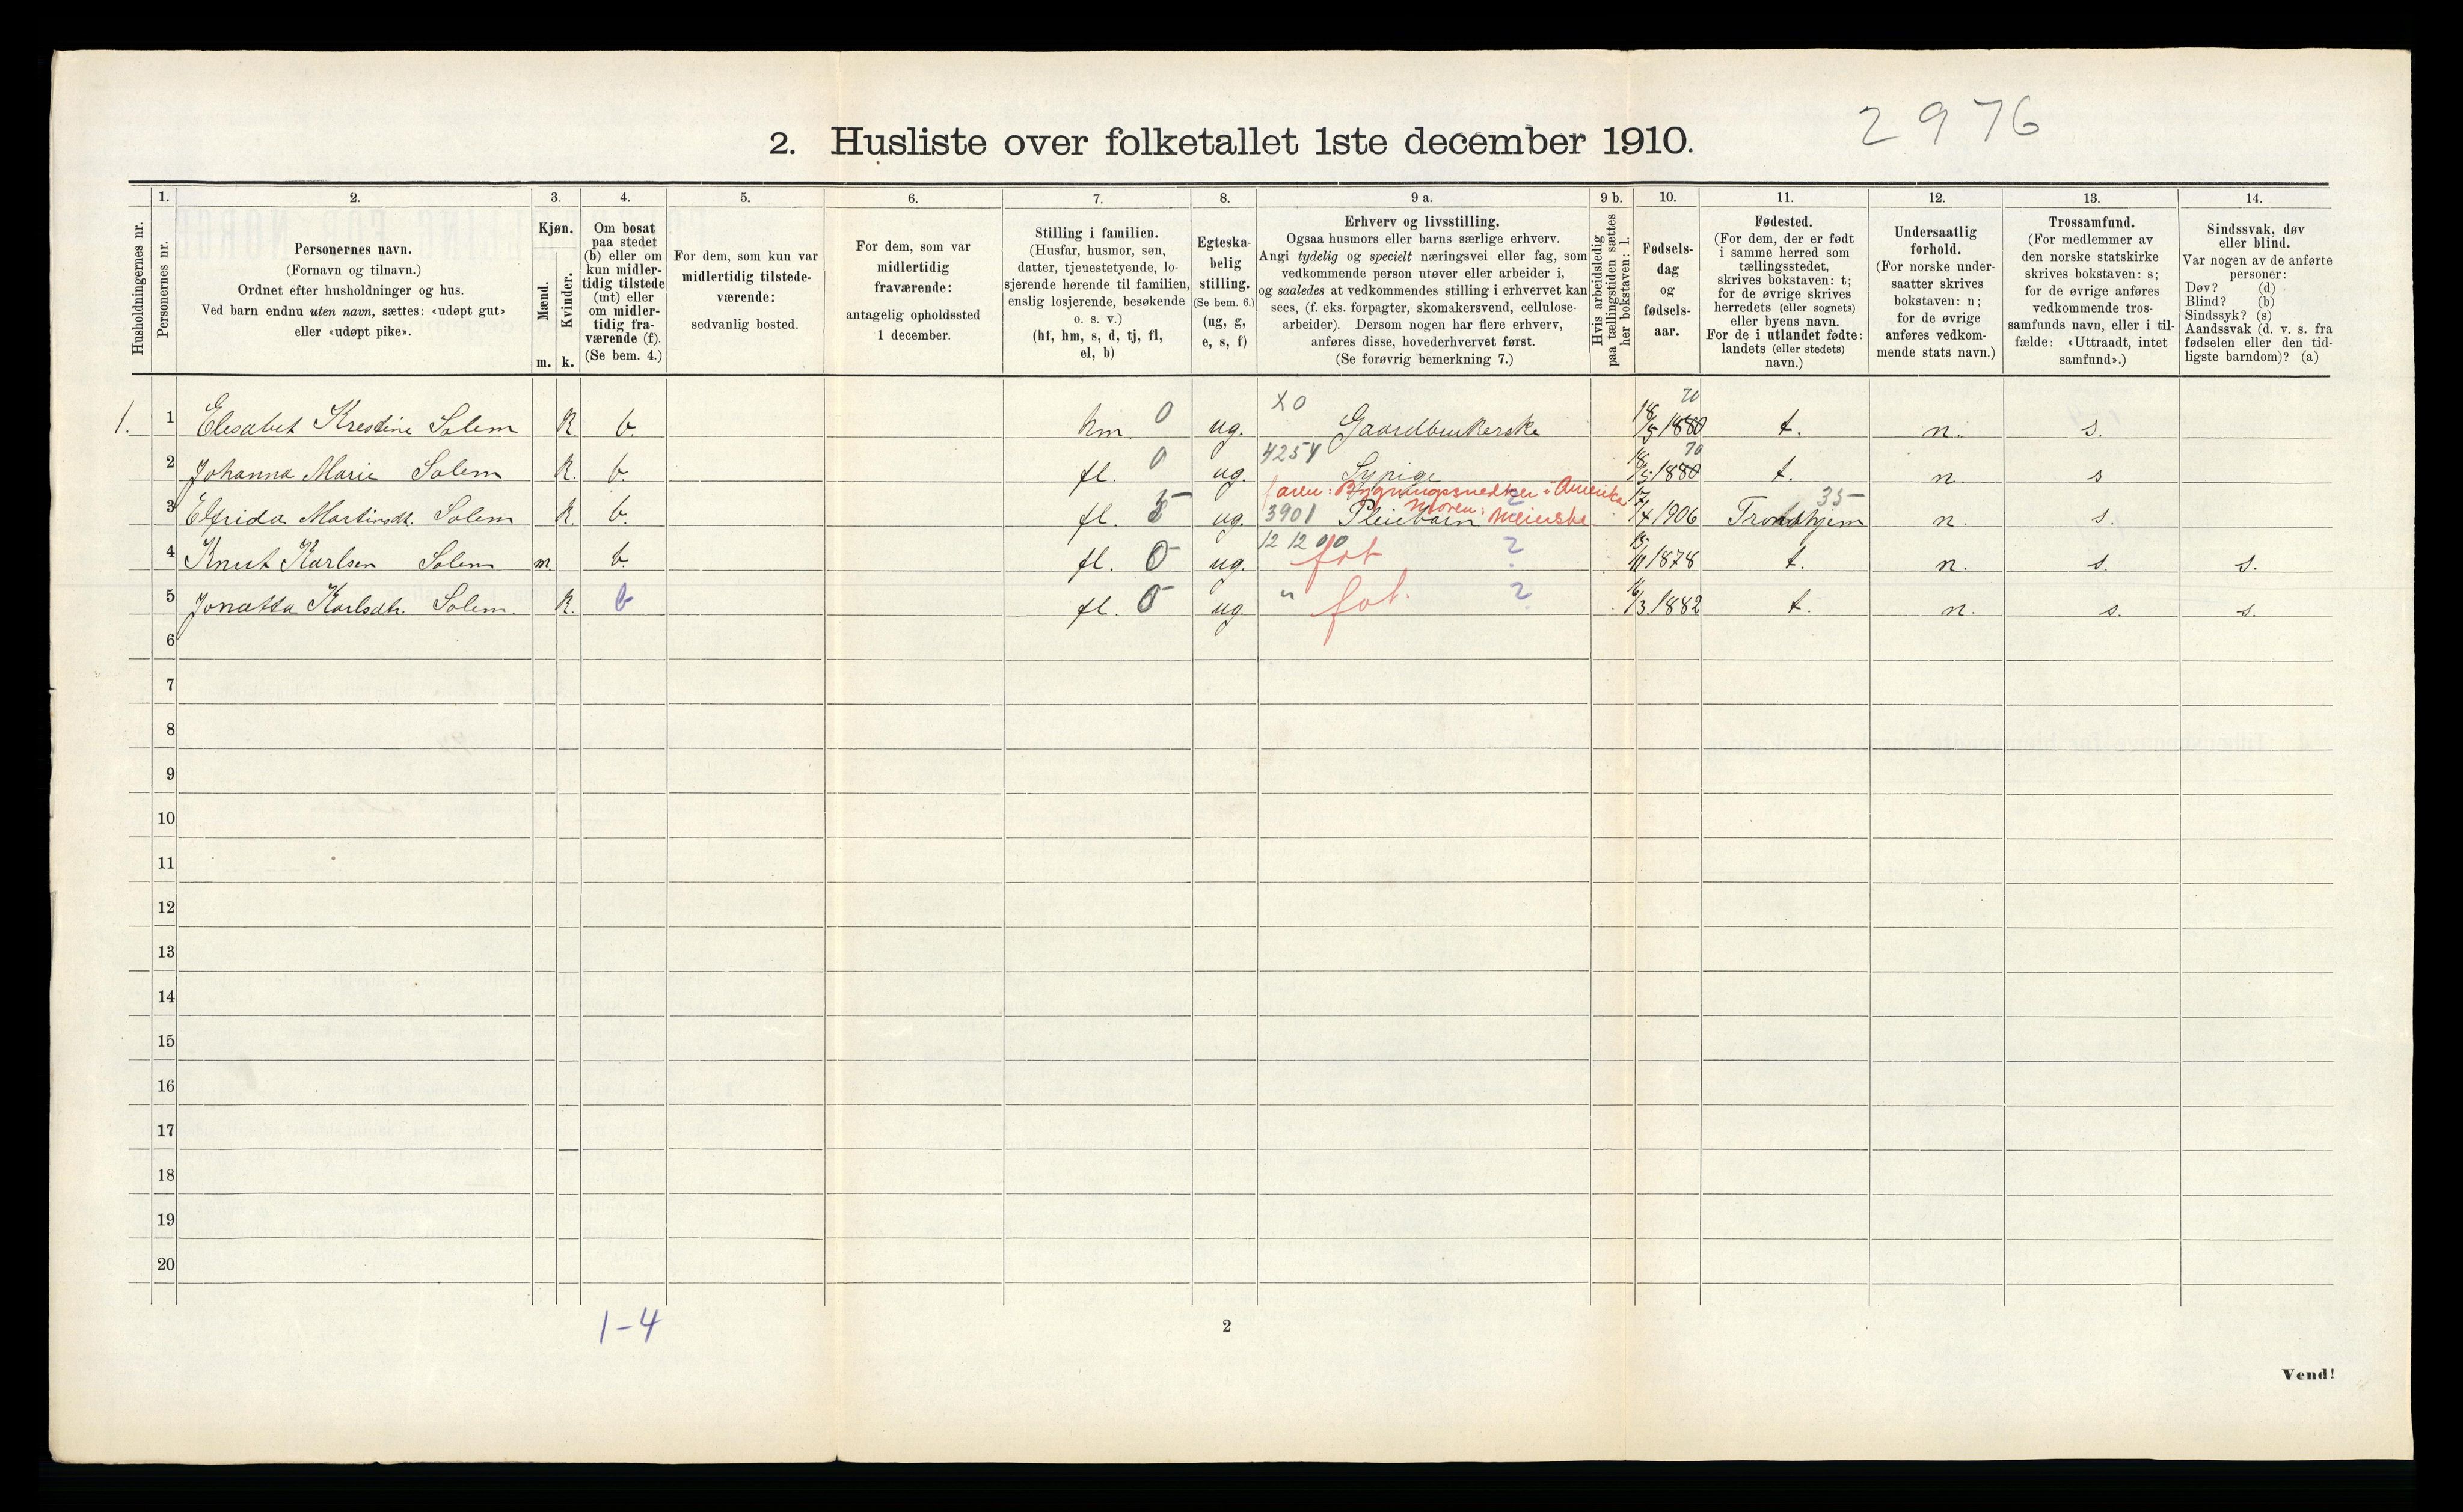 2976
2. Husliste over folketallet 1ste december 1910.
1. 2. 3. 4. 5. 6. 7. 8. 9 a. 9 b. 10. 11. 12. 13. 14.
Husholdningernes nr.
Personernes nr.
Personernes navn.
(Fornavn og tilnavn.)
Ordnet efter husholdninger og hus.
Ved barn endnu uten navn, sættes: «udøpt gut»
eller «udøpt pike».
Kjøn.
Mænd.
Kvinder.
m. k.
Om bosat
paa stedet
(b) eller om
kun midler-
tidig tilstede
(mt) eller
om midler-
tidig fra-
værende (f).
(Se bem. 4.)
For dem, som kun var
midlertidig tilstede-
værende:
sedvanlig bosted.
For dem, som var
midlertidig
fraværende:
antagelig opholdssted
1 december.
Stilling i familien.
(Husfar, husmor, søn,
datter, tjenestetyende, lo-
sjerende hørende til familien,
enslig losjerende, besøkende
o. s. v.)
(hf, hm, s, d, tj, fl,
el, b)
Egteska-
belig
stilling.
(Se bem. 6.)
(ug, g,
e, s, f)
Erhverv og livsstilling.
Ogsaa husmors eller barns særlige erhverv.
Angi tydelig og specielt næringsvei eller fag, som
vedkommende person utøver eller arbeider i,
og saaledes at vedkommendes stilling i erhvervet kan
sees, (f. eks. forpagter, skomakersvend, cellulose-
arbeider). Dersom nogen har flere erhverv,
anføres disse, hovederhvervet først.
(Se forøvrig bemerkning 7.)
Hvis arbeidsledig
paa tællingstiden sættes
her bokstaven: l.
Fødsels-
dag
og
fødsels-
aar.
Fødested.
(For dem, der er født
i samme herred som
tællingsstedet,
skrives bokstaven: t;
for de øvrige skrives
herredets (eller sognets)
eller byens navn.
For de i utlandet fødte:
landets (eller stedets)
navn.)
Undersaatlig
forhold.
(For norske under-
saatter skrives
bokstaven: n;
for de øvrige
anføres vedkom-
mende stats navn.)
Trossamfund.
(For medlemmer av
den norske statskirke
skrives bokstaven: s;
for de øvrige anføres
vedkommende tros-
samfunds navn, eller i til-
fælde: «Uttraadt, intet
samfund».)
Sindssvak, døv
eller blind.
Var nogen av de anførte
personer:
Døv? (d)
Blind? (b)
Sindssyk? (s)
Aandssvak (d. v. s. fra
fødselen eller den tid-
ligste barndom)? (a)
X0 70
1. 1 Elesabet Krestine Solem K. b. hm. 0 ug. Gaardbrukerske 18/5 1880 t. n. s.
4254 70
2 Johanna Marie Solem K. b. fl. 0 ug. Sypige 18/5 1880 t. n. s
faren: Bygningssnedker i Amerika
moren: Meierske 35
3 Elfrida Martinsdt. Solem K. b. fl. 5 ug. 3901 Pleiebarn 17/4 1906 Trondhjem n. s.
12 12 00
4 Knut Karlsen Solem m. b. fl. 0 ug. fat ? 15/11 1878 t. n. s. s.
5 Jonetta Karlsdtr. Solem. K. b fl. 0 ug. " fat. ? 16/3.1882 t. n. s. s.
6
7
8
9
10
11
12
13
14
15
16
17
18
19
20
1-4
2
Vend!